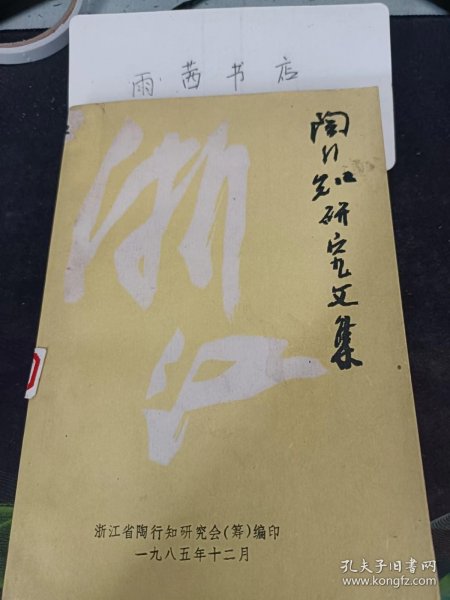 雨茜书店
陶行知研究文集
浙江
浙江省陶行知研究会(筹)编印
一九八五年十二月
孔夫子旧书网
www.kongfz.com